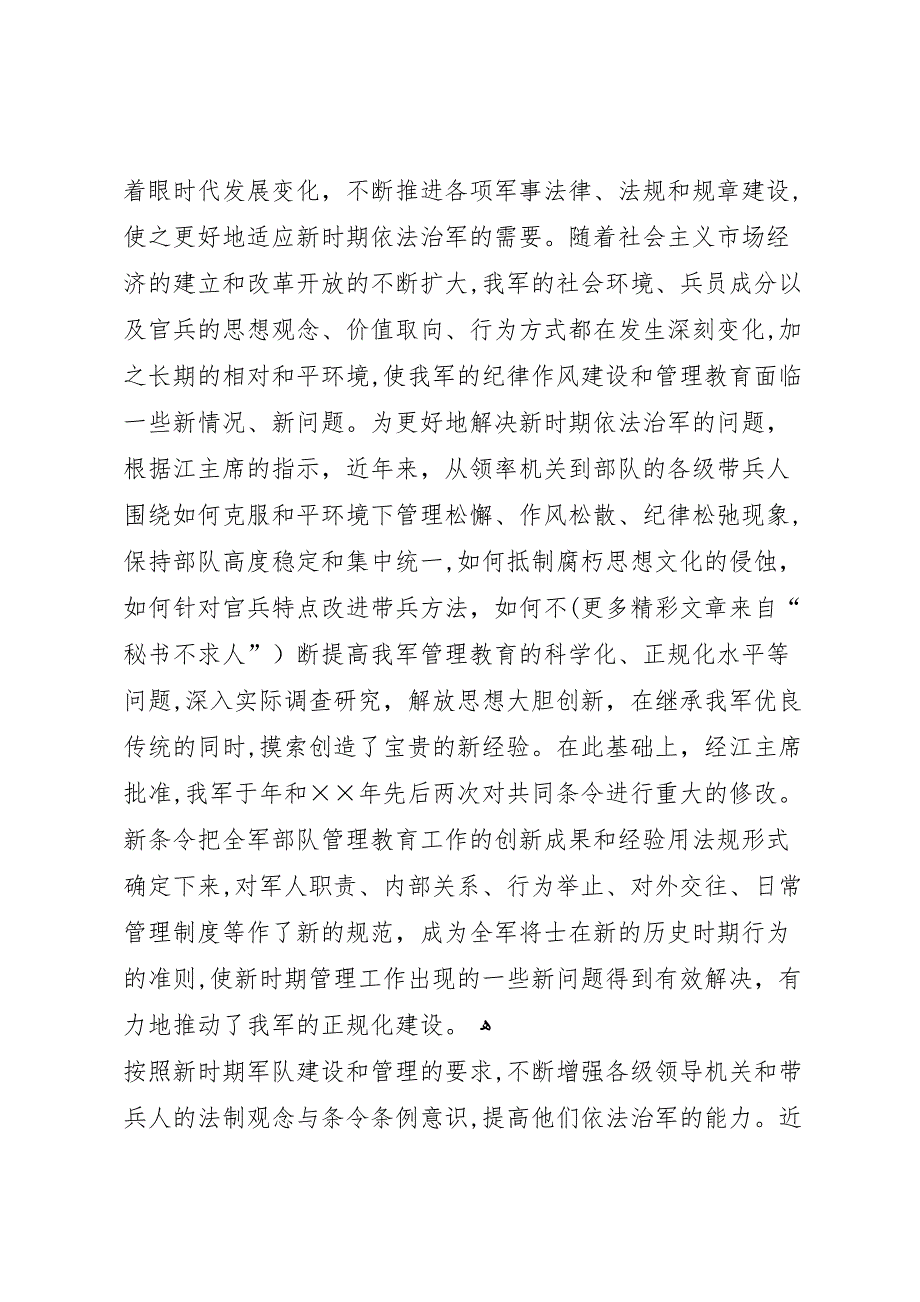 着眼时代发展变化，不断推进各项军事法律、法规和规章建设,
使之更好地适应新时期依法治军的需要。随着社会主义市场经
济的建立和改革开放的不断扩大,我军的社会环境、兵员成分以
及官兵的思想观念、价值取向、行为方式都在发生深刻变化,加
之长期的相对和平环境,使我军的纪律作风建设和管理教育面临
一些新情况、新问题。为更好地解决新时期依法治军的问题，
根据江主席的指示，近年来，从领率机关到部队的各级带兵人
围绕如何克服和平环境下管理松懈、作风松散、纪律松弛现象,
保持部队高度稳定和集中统一,如何抵制腐朽思想文化的侵蚀，
如何针对官兵特点改进带兵方法，如何不(更多精彩文章来自“
秘书不求人”）断提高我军管理教育的科学化、正规化水平等
问题,深入实际调查研究，解放思想大胆创新，在继承我军优良
传统的同时,摸索创造了宝贵的新经验。在此基础上，经江主席
批准,我军于年和××年先后两次对共同条令进行重大的修改。
新条令把全军部队管理教育工作的创新成果和经验用法规形式
确定下来,对军人职责、内部关系、行为举止、对外交往、日常
管理制度等作了新的规范，成为全军将士在新的历史时期行为
的准则,使新时期管理工作出现的一些新问题得到有效解决，有
力地推动了我军的正规化建设。 ﻫ
按照新时期军队建设和管理的要求,不断增强各级领导机关和带
兵人的法制观念与条令条例意识,提高他们依法治军的能力。近